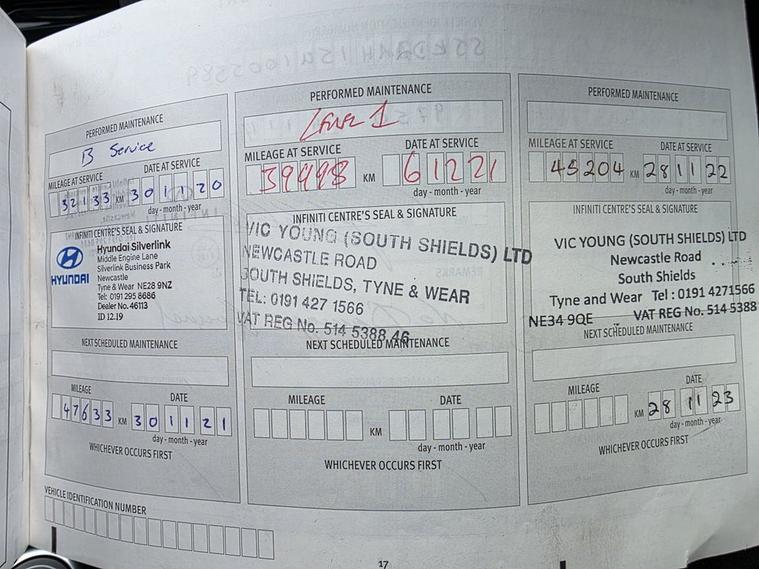 PERFORMED MAINTENANCE
B Service
MILEAGE AT SERVICE DATE AT SERVICE
32133 KM 301120
day - month - year
INFINITI CENTRE'S SEAL & SIGNATURE
HYUNDAI
Hyundai Silverlink
Middle Engine Lane
Silverlink Business Park
Newcastle
Tyne & Wear NE28 9NZ
Tel: 0191 295 8686
Dealer No. 46113
ID 12.19
NEXT SCHEDULED MAINTENANCE
MILEAGE DATE
47633 KM 301121
day - month - year
WHICHEVER OCCURS FIRST
VEHICLE IDENTIFICATION NUMBER
PERFORMED MAINTENANCE
Level 1
MILEAGE AT SERVICE DATE AT SERVICE
39998 KM 61221
day - month - year
INFINITI CENTRE'S SEAL & SIGNATURE
VIC YOUNG (SOUTH SHIELDS) LTD
NEWCASTLE ROAD
SOUTH SHIELDS, TYNE & WEAR
TEL: 0191 427 1566
VAT REG No. 514 5388 46
NEXT SCHEDULED MAINTENANCE
MILEAGE DATE
KM
day - month - year
WHICHEVER OCCURS FIRST
PERFORMED MAINTENANCE
MILEAGE AT SERVICE DATE AT SERVICE
45204 KM 281122
day - month - year
INFINITI CENTRE'S SEAL & SIGNATURE
VIC YOUNG (SOUTH SHIELDS) LTD
Newcastle Road
South Shields
Tyne and Wear Tel : 0191 4271566
NE34 9QE VAT REG No. 514 5388
NEXT SCHEDULED MAINTENANCE
MILEAGE DATE
KM 281123
day - month - year
WHICHEVER OCCURS FIRST
17